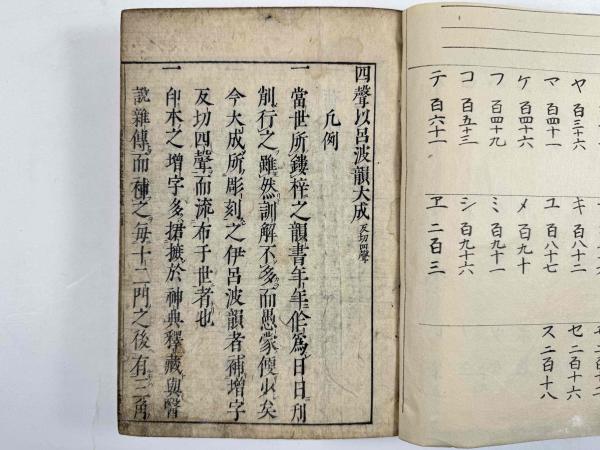 ヤ 百三十六
マ 百四十一
ケ 百四十六
フ 百四十九
コ 百五十三
テ 百六十一
キ 百八十二
ユ 百八十七
メ 百九十
ミ 百九十一
シ 百九十六
ヱ 二百三
セ 二百十六
ス 二百十八
四聲以呂波韻大成 反切四聲
凡例
一 當世所鏤梓之韻書年年作爲日日刋
刪行之雖然訓解不多而愚蒙便少矣
今大成所彫刻之伊呂波韻者補增字
反切四聲而流布于世者也
一 印本之增字多捃摭於神典釋藏與醫
説雜傳而補之每十二門之後有三角